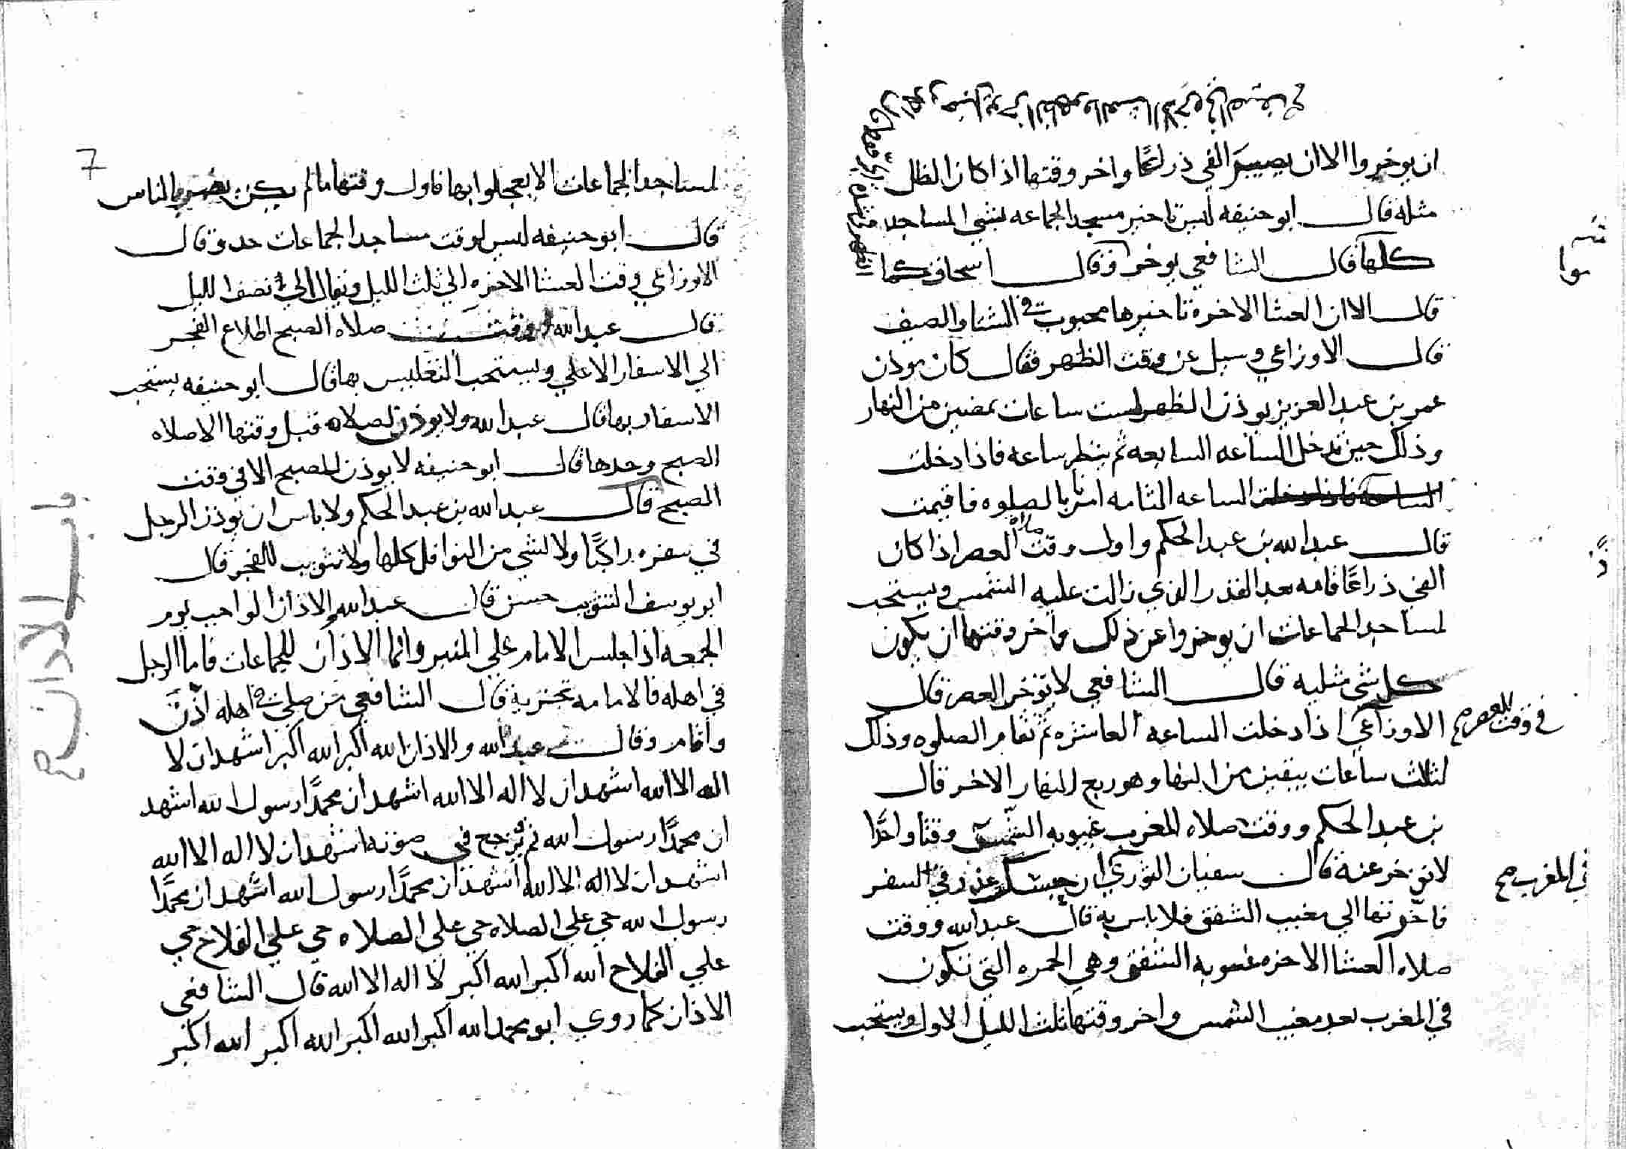 ان يوخروا الا ان يصير الفي ذراعًا واخر وقتها اذا كان الظل
مثله قال ابو حنيفه ليس تاخير مسجد الجماعه بشي المساجد
كلها قال الشافعي يوخر وقال اسحاق كما
قال الا ان العشا الاخره تاخيرها محبوب في الشتا والصيف
قال الاوزاعي وسيل عن وقت الظهر فقال كان موذن
عمر بن عبد العزيز يوذن الظهر لست ساعات يمضين من النهار
وذلك حين تدخل الساعه السابعه ثم ينظر ساعه فاذا دخلت
الساعه الثامنه امرنا بالصلوه فاقيمت
قال عبد الله بن عبد الحكم واول وقت صلاه العصر اذا كان
الفي ذراعًا قامه بعد القدر الذي زالت عليه الشمس ويستحب
لمساجد الجماعات ان يوخروا عن ذلك واخر وقتها ان يكون
كل شي مثليه قال الشافعي لا توخر العصر قال
الاوزاعي اذا دخلت الساعه العاشره ثم تقام الصلوه وذلك
لثلاث ساعات يبقين من النهار وهو ربع النهار الاخر قال
بن عبد الحكم ووقت صلاه المغرب غيبوبه الشمس وقتًا واحدًا
لا توخر عنه قال سفيان الثوري ان حبسك عذر في السفر
فاخرتها الي مغيب الشفق فلا باس به قال عبد الله ووقت
صلاه العشا الاخره غيبوبه الشفق وهي الحمره التي تكون
في المغرب بعد مغيب الشمس واخر وقتها ثلث الليل الاول ويستحب
في وقت العصر صح
في المغرب صح
7
لمساجد الجماعات الا يعجلوا بها فاول وقتها ما لم يكن يضر بالناس
قال ابو حنيفه ليس لوقت مساجد الجماعات حد وقال
الاوزاعي وقت العشا الاخره الي ثلث الليل ويقال الي نصف الليل
قال عبد الله ووقت صلاه الصبح اطلاع الفجر
الي الاسفار الاعلي ويستحب التغليس بها قال ابو حنيفه يستحب
الاسفار بها قال عبد الله ولا يوذن لصلاه قبل وقتها الا صلاه
الصبح وحدها قال ابو حنيفه لا يوذن للصبح الا في وقت
الصبح قال عبد الله بن عبد الحكم ولا باس ان يوذن الرجل
في سفره راكبًا ولا لشي من النوافل كلها ولا تثويب للفجر قال
ابو يوسف التثويب حسن قال عبد الله الاذان الواجب يوم
الجمعه اذا جلس الامام علي المنبر وانما الاذان للجماعات فاما الرجل
في اهله فالاقامه تجزيه قال الشافعي من صلي في اهله اذن
واقام وقال عبد الله والاذان الله اكبر الله اكبر اشهد ان لا
اله الا الله اشهد ان لا اله الا الله اشهد ان محمدًا رسول الله اشهد
ان محمدًا رسول الله ثم يرجع في صوته اشهد ان لا اله الا الله
اشهد ان لا اله الا الله اشهد ان محمدًا رسول الله اشهد ان محمدًا
رسول الله حي علي الصلاه حي علي الصلاه حي علي الفلاح حي
علي الفلاح الله اكبر الله اكبر لا اله الا الله قال الشافعي
الاذان كما روي ابو محمد الله اكبر الله اكبر الله اكبر الله اكبر
باب الاذان